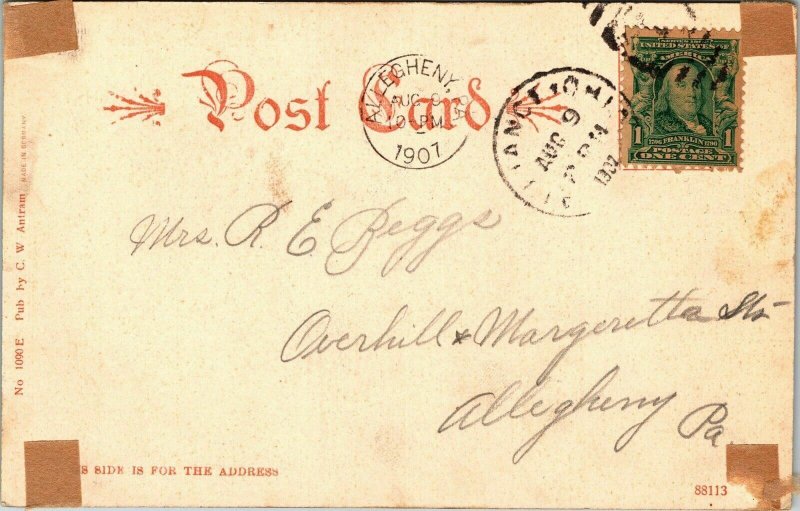 Post Card
ALLEGHENY, PA.
AUG 9
10 PM
1907
ALLIANCE, OHIO
AUG 9
1907
UNITED STATES OF AMERICA
1 1
1706 FRANKLIN 1790
POSTAGE
ONE CENT
Mrs. R. E. Beggs
Overhill & Margeretta Sts
Allegheny
Pa.
No 1000 E Pub by C. W Antram MADE IN GERMANY
S SIDE IS FOR THE ADDRESS
88113